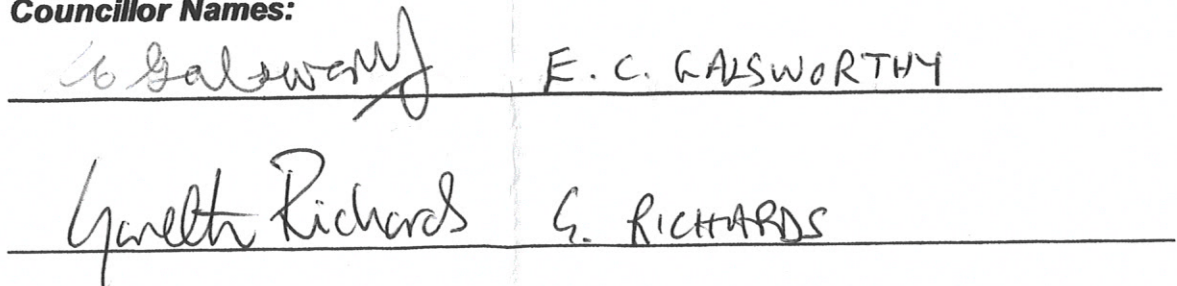 Councillor Names:
Galsworthy E. C. GALSWORTHY
Gareth Richards G. RICHARDS